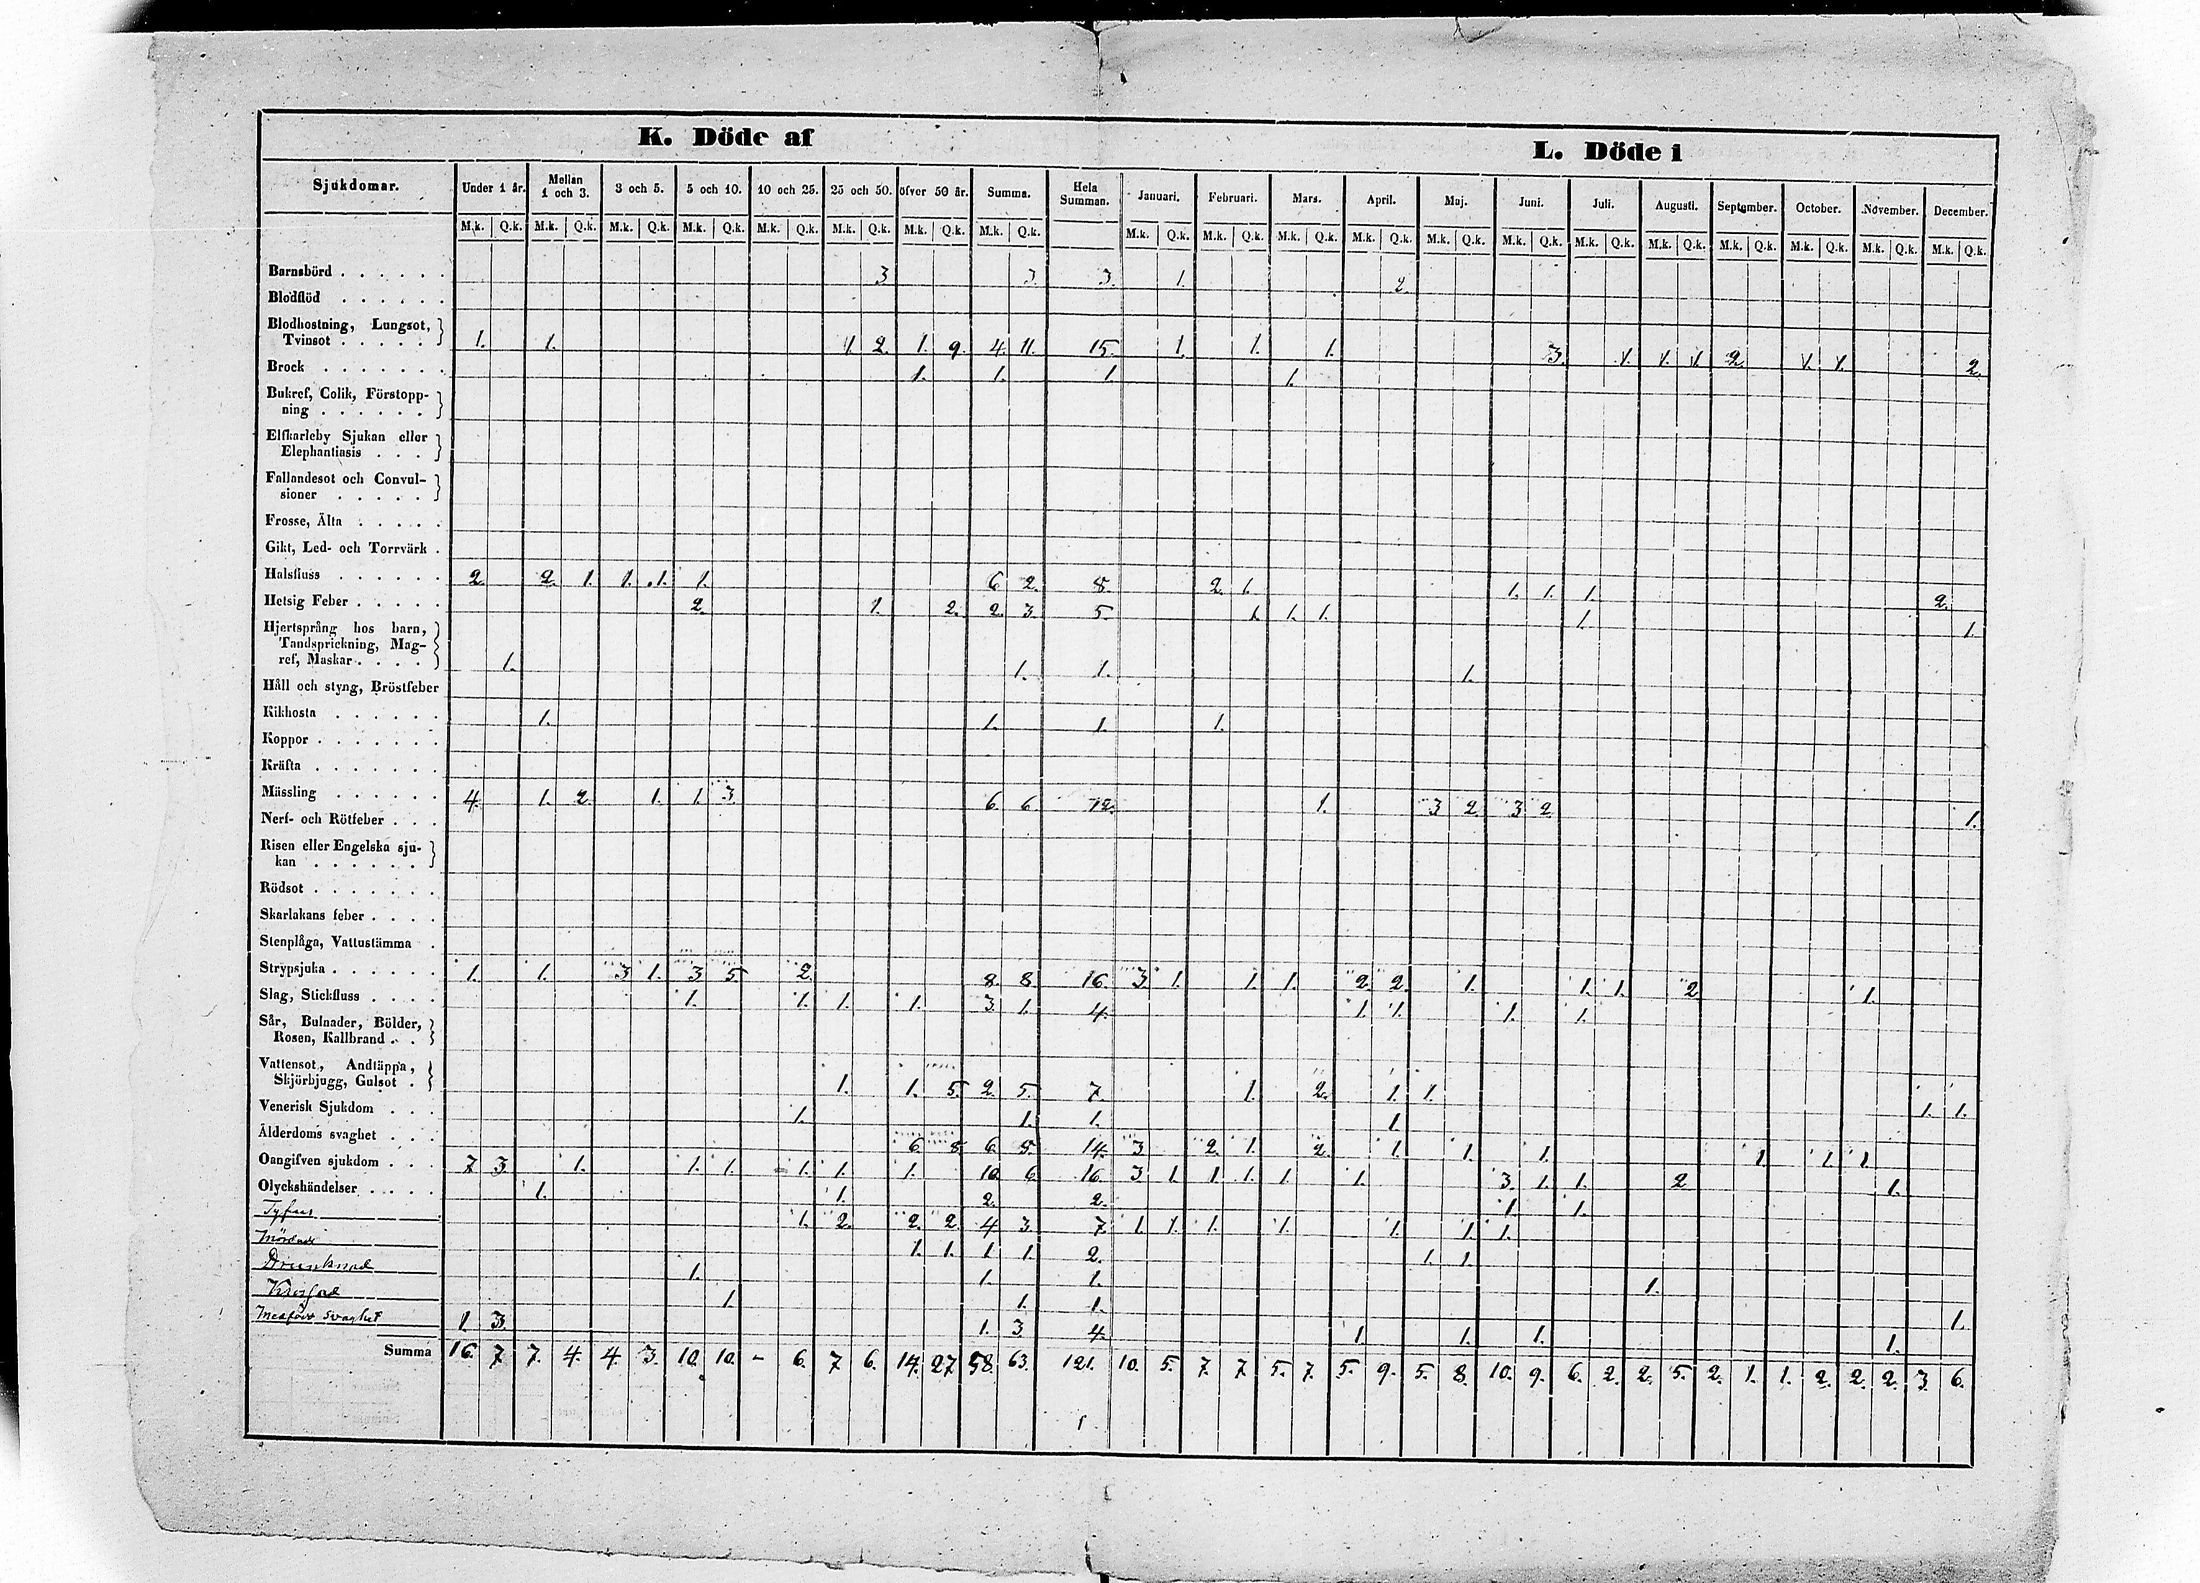 K. Döde af
L. Döde i
Sjukdomar. Under 1 år. Mellan 1 och 3. 3 och 5. 5 och 10. 10 och 25. 25 och 50. öfver 50 år. Summa. Hela Summan. Januari. Februari. Mars. April. Maj. Juni. Juli. Augusti. September. October. November. December.
M.k. Q.k. M.k. Q.k. M.k. Q.k. M.k. Q.k. M.k. Q.k. M.k. Q.k. M.k. Q.k. M.k. Q.k. M.k. Q.k. M.k. Q.k. M.k. Q.k. M.k. Q.k. M.k. Q.k. M.k. Q.k. M.k. Q.k. M.k. Q.k. M.k. Q.k. M.k. Q.k. M.k. Q.k. M.k. Q.k.
Barnsbörd . . . . . . 3 3 3. 1. 2.
Blodflöd . . . . . .
Blodhostning, Lungsot,
Tvinsot . . . . . 1. 1. 1. 2. 1. 9. 4. 11. 15. 1. 1. 1. 3. 1. 1. 1. 2. 1. 1. 2.
Brock . . . . . . . 1. 1. 1. 1.
Bukref, Colik, Förstopp-
ning . . . . . .
Elfkarleby Sjukan eller
Elephantiasis . . .
Fallandesot och Convul-
sioner . . . . .
Frosse, Älta . . . . .
Gikt, Led- och Torrvärk .
Halsfluss . . . . . . 2 2. 1. 1. 1. 1. 6 2. 8. 2. 1. 1. 1. 1. 2.
Hetsig Feber . . . . . 2. 1. 2. 2. 3. 5. 1. 1. 1. 1. 1.
Hjertsprång hos barn,
Tandsprickning, Mag-
ref, Maskar . . . . 1. 1. 1. 1.
Håll och styng, Bröstfeber
Kikhosta . . . . . . 1. 1. 1. 1.
Koppor . . . . . . .
Kräfta . . . . . . .
Mässling . . . . . . 4. 1. 2. 1. 1. 3. 6. 6. 12. 1. 3 2. 3 2. 1.
Nerf- och Rötfeber . . .
Risen eller Engelska sju-
kan . . . . . .
Rödsot . . . . . . .
Skarlakans feber . . . .
Stenplåga, Vattustämma .
Strypsjuka . . . . . . 1. 1. 3 1. 3 5. 2. 8. 8. 16. 3. 1. 1. 1. 2. 2. 1. 1. 1. 2 1.
Slag, Stickfluss . . . . 1. 1. 1. 1. 3. 1. 4. 1. 1. 1. 1.
Sår, Bulnader, Bölder,
Rosen, Kallbrand . .
Vattensot, Andtäppa,
Skjörbjugg, Gulsot . 1. 1. 5. 2. 5. 7. 1. 2. 1. 1. 1. 1.
Venerisk Sjukdom . . . 1. 1. 1. 1.
Ålderdoms svaghet . . . 6. 8 6. 8. 14. 3 2. 1. 2. 1. 1. 1. 1. 1. 1.
Oangifven sjukdom . . . 7 3. 1. 1. 1. 1. 1. 1. 10. 6. 16. 3 1. 1. 1. 1. 1. 3. 1. 1. 2 1.
Olyckshändelser . . . . 1. 1. 2. 2. 1. 1.
Tyfus 1. 2. 2. 2. 4 3. 7. 1. 1. 1. 1. 1. 1. 1.
Mördade 1. 1. 1. 1. 2. 1. 1.
Drunknad 1. 1. 1. 1.
1. 1. 1. 1.
Medfödd svaghet 1. 3. 1. 3 4. 1. 1. 1. 1.
Summa 16. 7. 7. 4. 4. 3. 10. 10. - 6. 7 6. 14. 27. 58. 63. 121. 10. 5. 7. 7 5. 7. 5. 9. 5. 8. 10. 9. 6. 2. 2. 5. 2. 1. 1. 2. 2. 2. 3. 6.